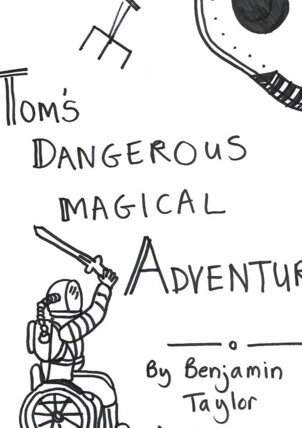 Tom's
DANGEROUS
MAGICAL
ADVENTUR
By Benjamin
Taylor